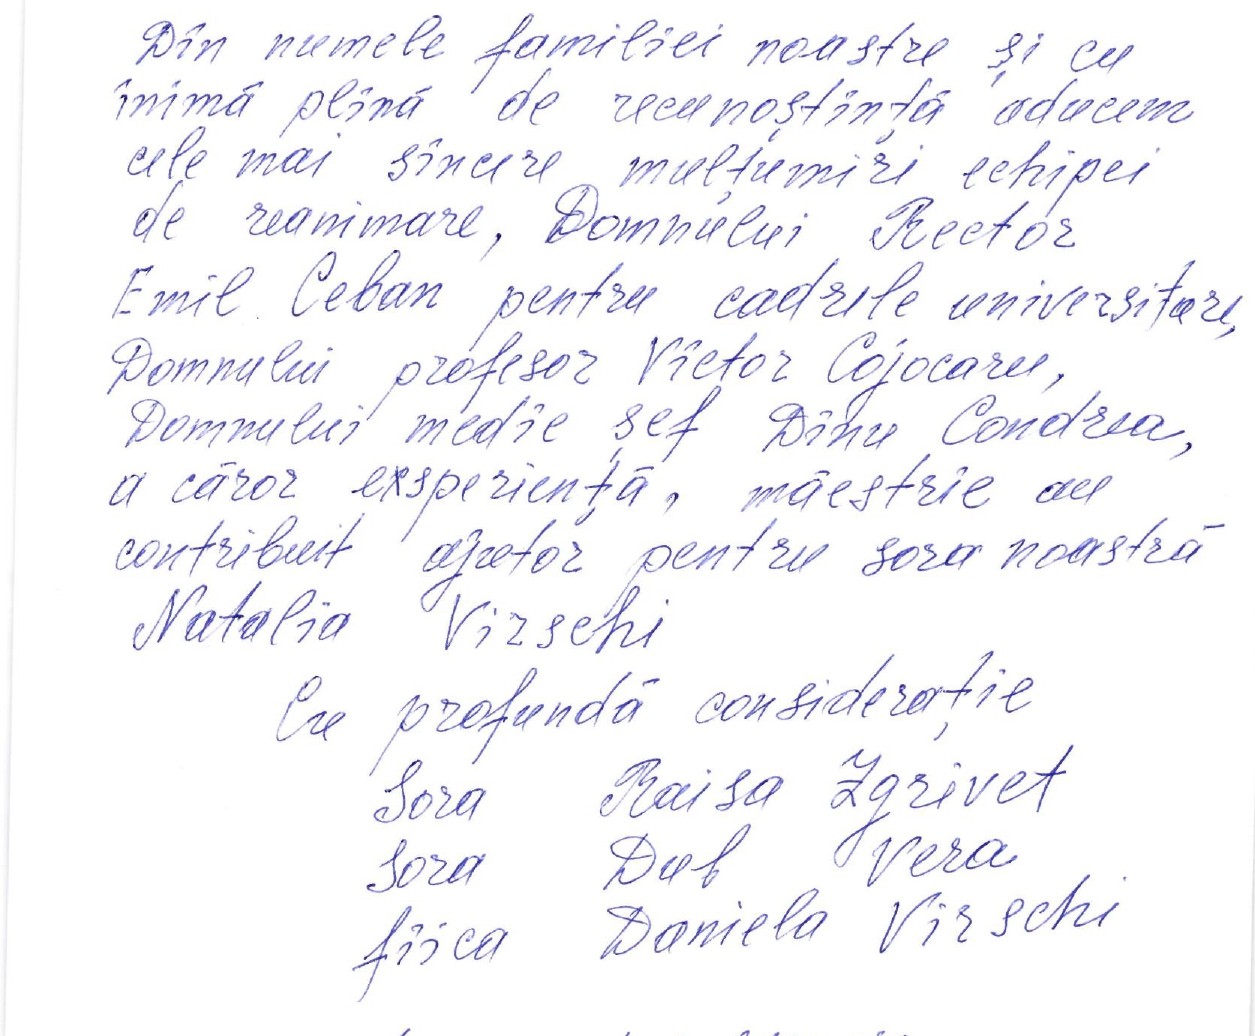 Din numele familiei noastre și cu
inimă plină de recunoștință aducem
cele mai sincere mulțumiri echipei
de reanimare, Domnului Rector
Emil Ceban pentru cadrele universitare,
Domnului profesor Victor Cojocaru,
Domnului medic șef Dinu Condrea,
a căror exsperiență, măestrie au
contribuit ajutor pentru sora noastră
Natalia Virschi
Cu profundă considerație
Sora Raisa Zgrivet
Sora Dub Vera
fiica Daniela Virschi